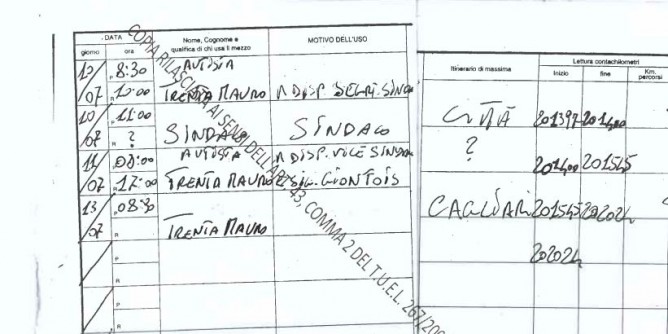 DATA
giorno
ora
Nome, Cognome e
qualifica di chi usa il mezzo
MOTIVO DELL'USO
Itinerario di massima
Lettura contachilometri
Inizio
fine
Km.
percorsi
10/07
P 8:30
AUTISTA
R 10:00
TRENTA MAURO
A DISP. SEGR. SINDA
CITTÀ
201397
201400
10
P 11:00
R ?
SINDACO
SINDACO
?
201400
201545
11/07
P 08:00
AUTISTA
A DISP. VICE SINDACO
R 17:00
TRENTA MAURO
E SIG. GIONTOIS
CAGLIARI
201545
202024
13/07
P 08:30
R
TRENTA MAURO
202024
P
R
P
R
COPIA RILASCIATA AI SENSI DELL'ART. 43, COMMA 2 DEL T.U.E.L. 267/200